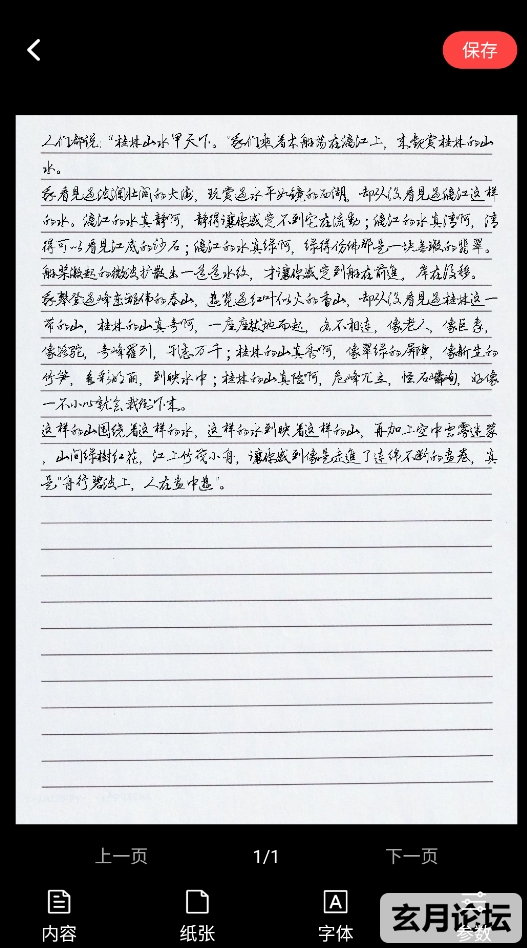 保存
人们都说:"桂林山水甲天下。"我们乘着木船荡在漓江上,来观赏桂林的山
水。
我看見過波瀾壯闊的大海,玩賞過水平如鏡的西湖,却从没看見過漓江这样
的水。漓江的水真静啊,静得讓你感覚不到它在流動;漓江的水真清啊,清
得可以看見江底的沙石;漓江的水真绿啊,绿得仿佛那是一块無瑕的翡翠。
船桨激起的微波扩散出一道道水纹,才讓你感覚到船在前進,岸在後移。
我攀登過峰巒雄偉的泰山,遊覽過红叶似火的香山,却从没看見過桂林这一
带的山,桂林的山真奇啊,一座座拔地而起,各不相连,像老人,像巨象,
像骆驼,奇峰羅列,形态万千;桂林的山真秀啊,像翠绿的屏障,像新生的
竹笋,色彩明丽,倒映水中;桂林的山真险啊,危峰兀立,怪石嶙峋,好像
一不小心就会栽倒下来。
这样的山围绕着这样的水,这样的水倒映着这样的山,再加上空中雲霧迷蒙
,山间绿樹红花,江上竹筏小舟,讓你感到像是走進了连绵不断的畫卷,真
是"舟行碧波上,人在畫中遊"。
上一页
1/1
下一页
内容
纸张
字体
参数
玄月论坛